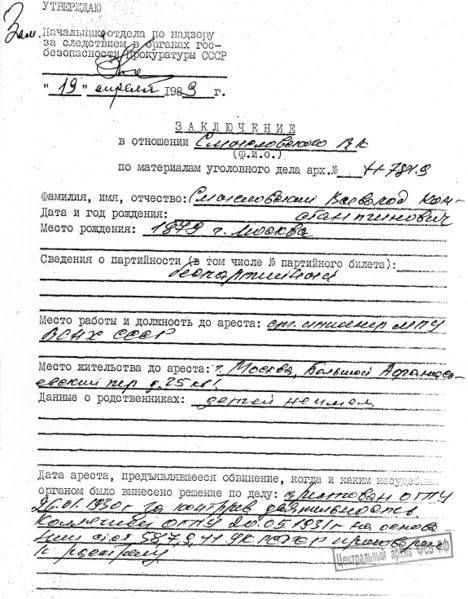 УТВЕРЖДАЮ
Зам. Начальника отдела по надзору
за следствием в органах гос-
безопасности Прокуратуры СССР
"19" апреля 1989 г.
ЗАКЛЮЧЕНИЕ
в отношении Смысловского В К
(Ф.И.О.)
по материалам уголовного дела арх.№ Н-7849
Фамилия, имя, отчество: Смысловский Всеволод Кон-
Дата и год рождения: стантинович
Место рождения: 1879 г. Москва
Сведения о партийности (в том числе № партийного билета):
беспартийный
Место работы и должность до ареста: ст. инженер МПУ
ВСНХ СССР
Место жительства до ареста: г. Москва, Большой Афанась-
евский пер д. 25 кв 1
Данные о родственниках: детей не имел
Дата ареста, предъявлявшееся обвинение, когда и каким несудебным
органом было вынесено решение по делу: арестован ОГПУ
26.01.1930г за контррев деятельность.
Коллегией ОГПУ 20.05.1931г на основа
нии ст.ст 58 7, 9, 11 УК приговор
к расстрелу
Центральный архив ФСБ РФ